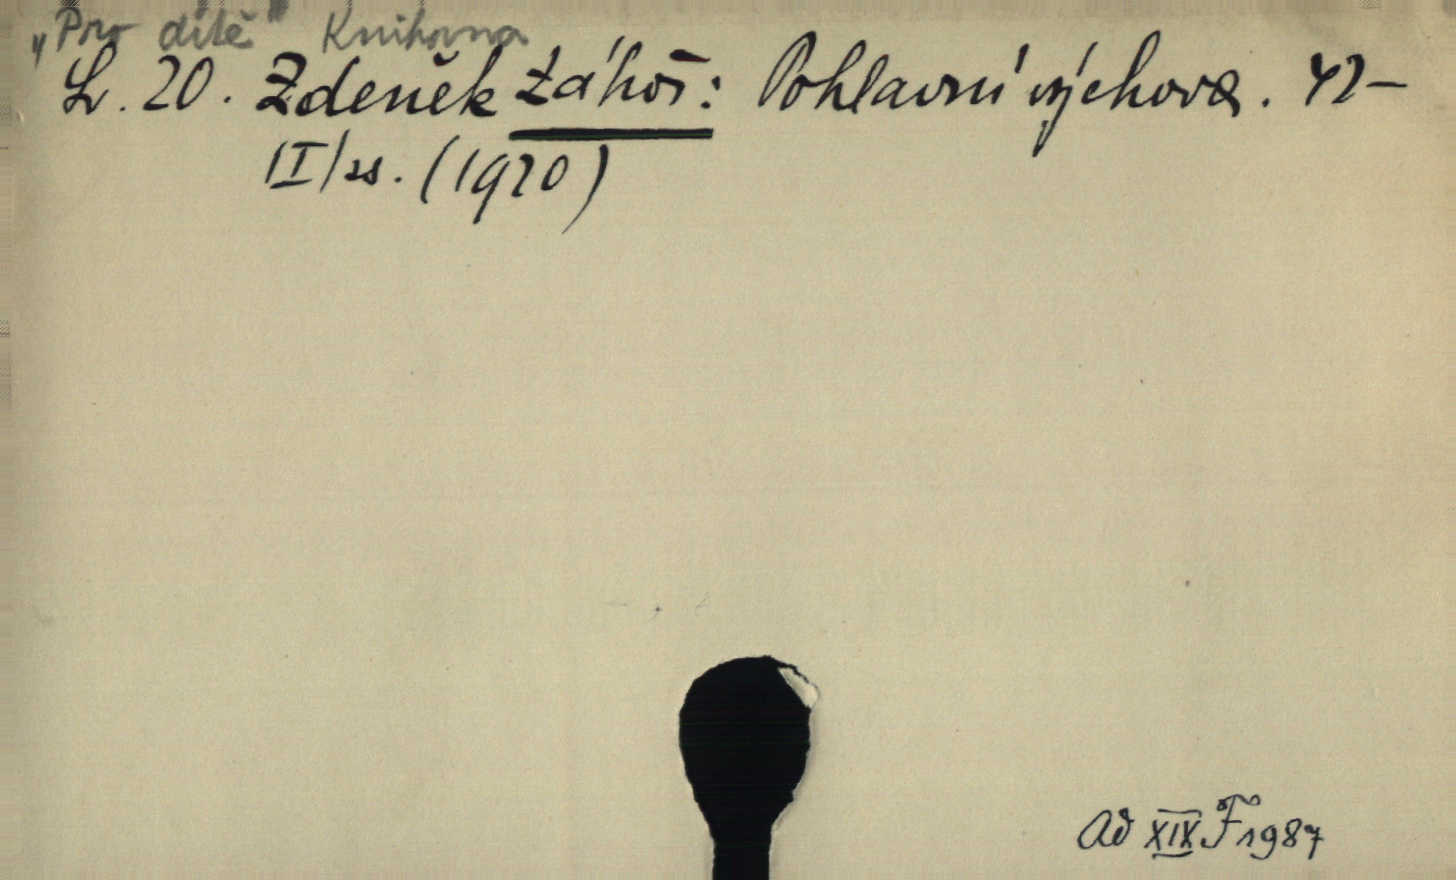 „Pro dítě" Knihovna
L. 20. Zdeněk Záhoř: Pohlavní výchova. 42–
II/ss. (1920)
Ad XIX F 1987